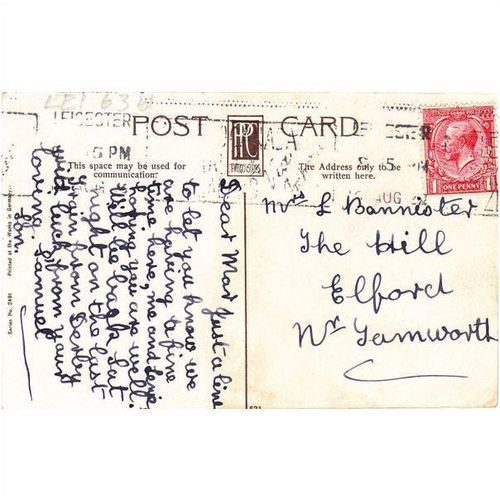 LEI 63
LEICESTER
5 PM
AUG
POST CARD
This space may be used for
communication.
The Address only to be
written here.
ONE PENNY
Dear Mar Just a line
to let you know we
are having a fine
time here, me and
hoping you are well.
Will be back Sat.
night on the last
train from Derby
good luck from your
loving
Son
Samuel
Mrs L Bannister
The Hill
Elford
Nr Tamworth
Series No. 2491 Printed at the Works in Germany.